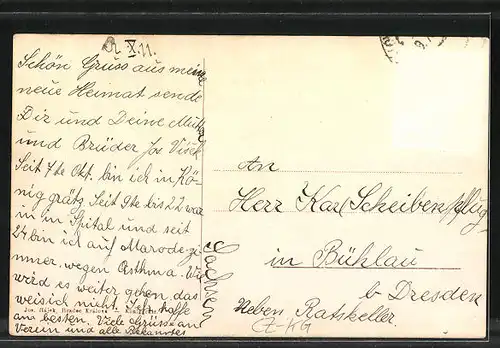 X. 11.
Schön Gruss aus meine
neue Heimat sende
Dir und Deine Mutter
und Brüder Jos
Seit 7te Okt. bin ich in Kö-
nig grätz. Seit 9te bis 22 war
in im Spital und seit
24 bin ich auf Marode-zi
mmer. wegen Asthma. Wie
wird es weiter gehen, das
weis ich nicht. Ich hoffe
am besten. Viele Grüsse an
Verein und alle Bekanntes
Sachsen
An
Herr Karl Scheibenpflug
in Bühlau
b Dresden
Neben Ratskeller.
Jos. Hradec Králové